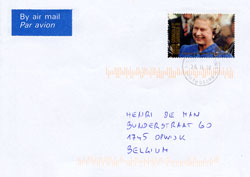 By air mail
Par avion
HENRI DE MAN
BUNDERSTRAAT 60
1745 OPWIJK
BELGIUM